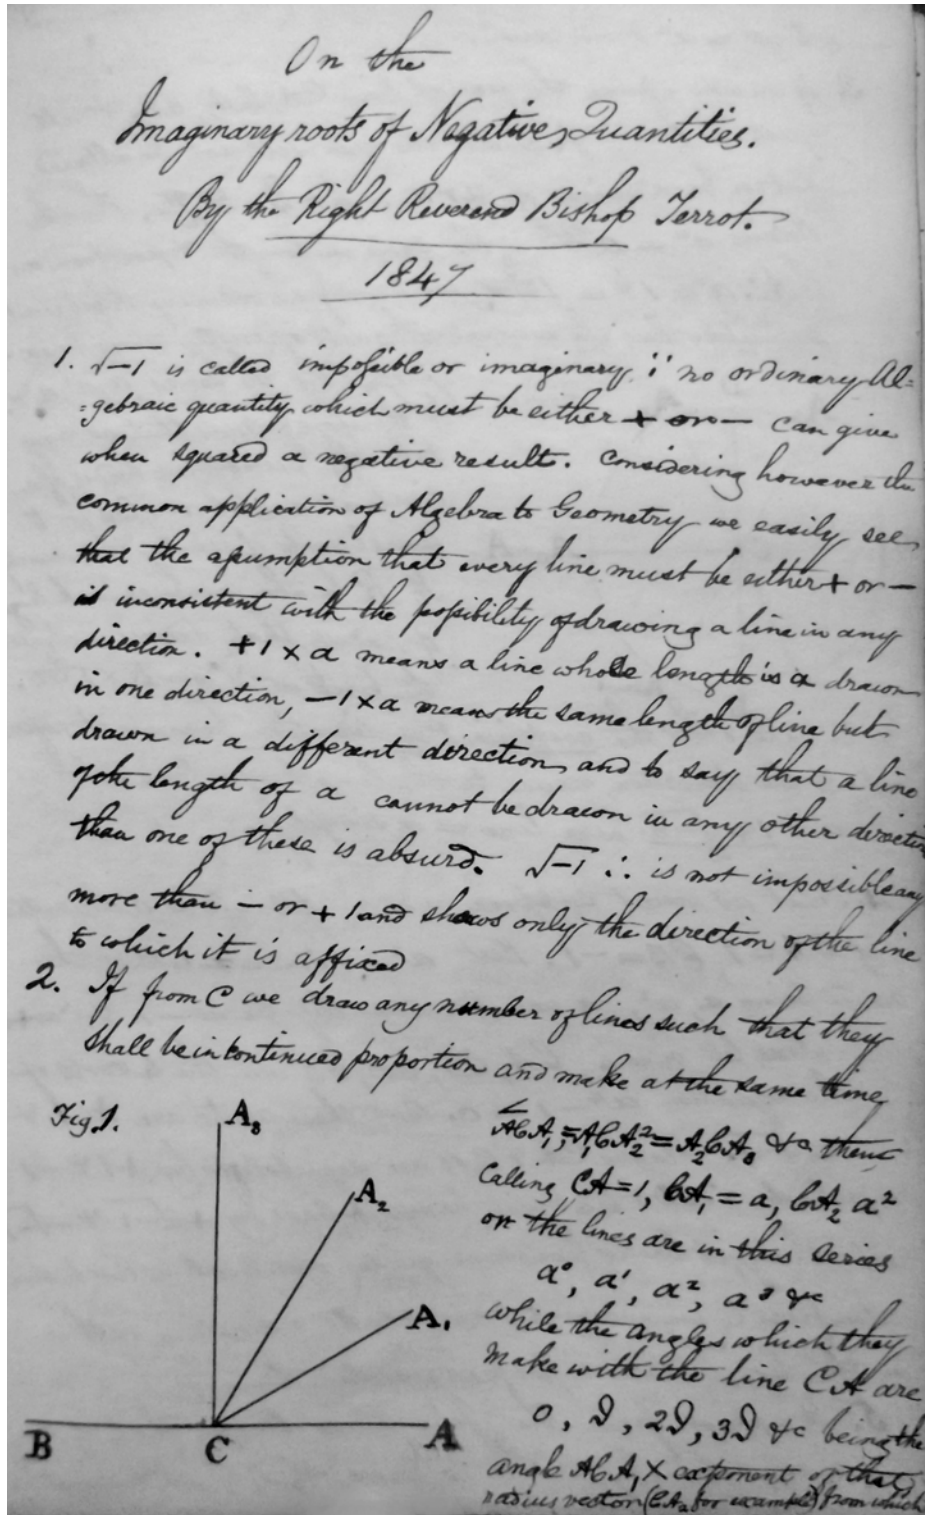 On the
Imaginary roots of Negative Quantities.
By the Right Reverend Bishop Terrot.
1847
1. √-1 is called impossible or imaginary ∵ no ordinary Al=
=gebraic quantity which must be either + or - can give
when squared a negative result. Considering however the
common application of Algebra to Geometry we easily see
that the assumption that every line must be either + or -
is inconsistent with the possibility of drawing a line in any
direction. +1 × a means a line whose length is a drawn
in one direction, -1 × a means the same length of line but
drawn in a different direction and to say that a line
of the length of a cannot be drawn in any other direction
than one of these is absurd. √-1 ∴ is not impossible any
more than - or + 1 and shows only the direction of the line
to which it is affixed
2. If from C we draw any number of lines such that they
shall be in continued proportion and make at the same time
Fig. 1.
A₃
A₂
A₁
B
C
A
∠ACA₁ = A₁CA₂ = A₂CA₃ &c then
Calling CA = 1, CA₁ = a, CA₂ a²
or the lines are in this series
a⁰, a¹, a², a³ &c
while the angles which they
make with the line CA are
0, ϑ, 2ϑ, 3ϑ &c being the
angle ACA₁ × exponent of that
radius vector (CA₂ for example) from which